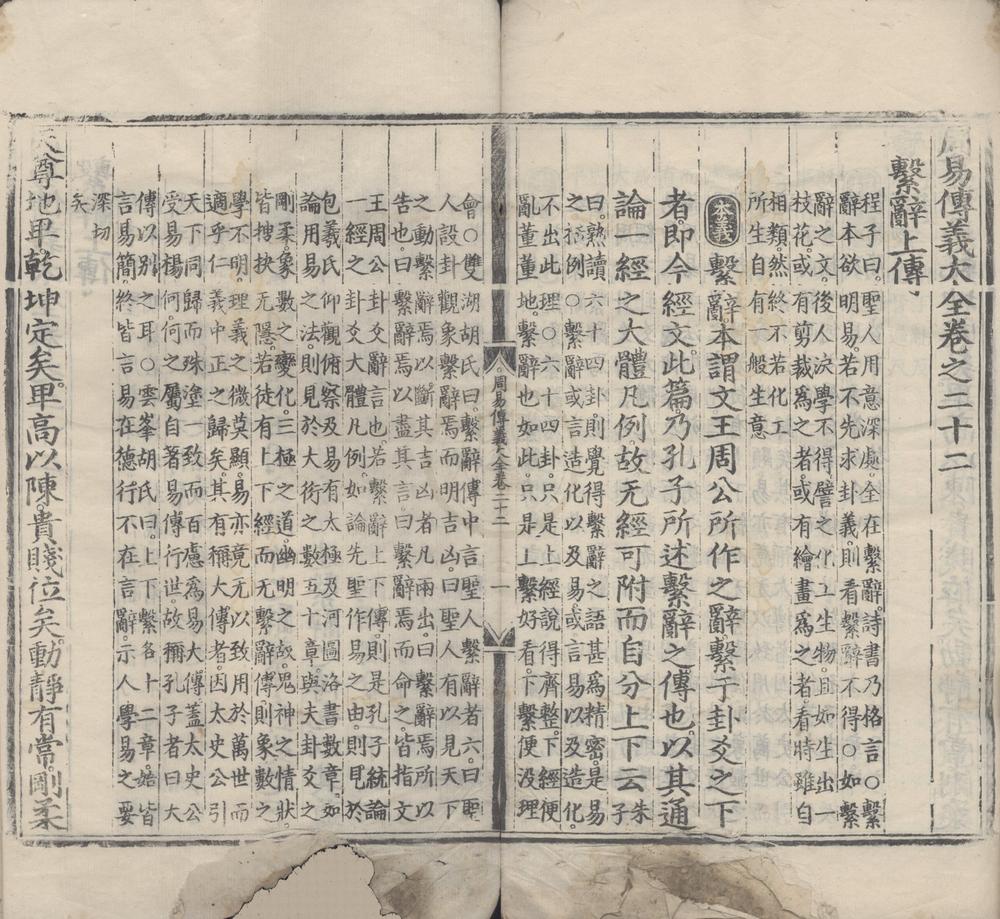 周易傳義大全卷之二十二
繫辭上傳
程子曰聖人用意深處全在繫辭詩書乃格言○繫
辭本欲明易若不先求卦義則看繫辭不得○如繫
辭之文後人決學不得譬之化工生物且如生出一
枝花或有剪裁為之者或有繪畫為之者看時雖自
相類然終不若化工
所生自有一般生意
本義 繫辭本謂文王周公所作之辭繫于卦爻之下
者即今經文此篇乃孔子所述繫辭之傳也以其通
論一經之大體凡例故无經可附而自分上下云 朱子
曰熟讀六十四卦則覺得繫辭之語甚為精密是易
之括例○繫辭或言造化以及易或言易以及造化
不出此理○六十四卦只是上經說得齊整下經便
亂董董地繫辭也如此只是上繫好看下繫便沒理
周易傳義大全卷二十二 一
會○雙湖胡氏曰繫辭傳中言聖人繫辭者六曰聖
人設卦觀象繫辭焉而明吉凶曰聖人有以見天下
之動繫辭焉以斷其吉凶者凡兩出曰繫辭焉所以
告也曰繫辭焉以盡其言曰繫辭焉而命之皆指文
王周公卦爻辭言也若繫辭上下傳則是孔子統論
一經之卦爻大體凡例如論先聖作易之由則見於
包羲氏仰觀俯察及易有太極及河圖洛書數章如
論用易之法則見於大衍之數五十章與夫卦爻之
剛柔象數之變化三極之道幽明之故鬼神之情狀
皆搜抉无隱若徒有上下經而无繫辭傳則象數之
學不明理義之微莫顯易亦竟无以致用於萬世而
適乎仁義中正之歸矣其有稱大傳者因太史公引
天下同歸而殊塗一致而百慮為易大傳蓋太史公
受易楊何何之屬自著易傳行世故稱孔子者曰大
傳以別之耳○雲峯胡氏曰上下繫各十二章始皆
言易簡終皆言易在德行不在言辭示人學易之要
深切
矣
天尊地卑乾坤定矣卑高以陳貴賤位矣動靜有常剛柔